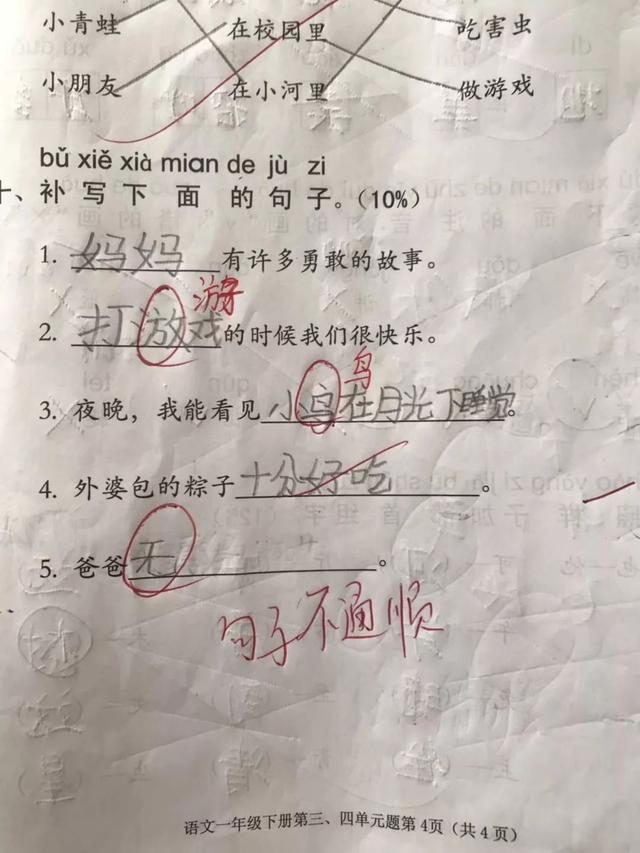 小青蛙 在校园里 吃害虫
小朋友 在小河里 做游戏
bǔ xiě xià mian de jù zi
十、补写下面的句子。(10%)
1. 妈妈有许多勇敢的故事。
游
2. 打游戏的时候我们很快乐。
鸟
3. 夜晚，我能看见小鸟在月光下睡觉。
4. 外婆包的粽子十分好吃。
5. 爸爸无。
句子不通顺
语文一年级下册第三、四单元题第4页（共4页）